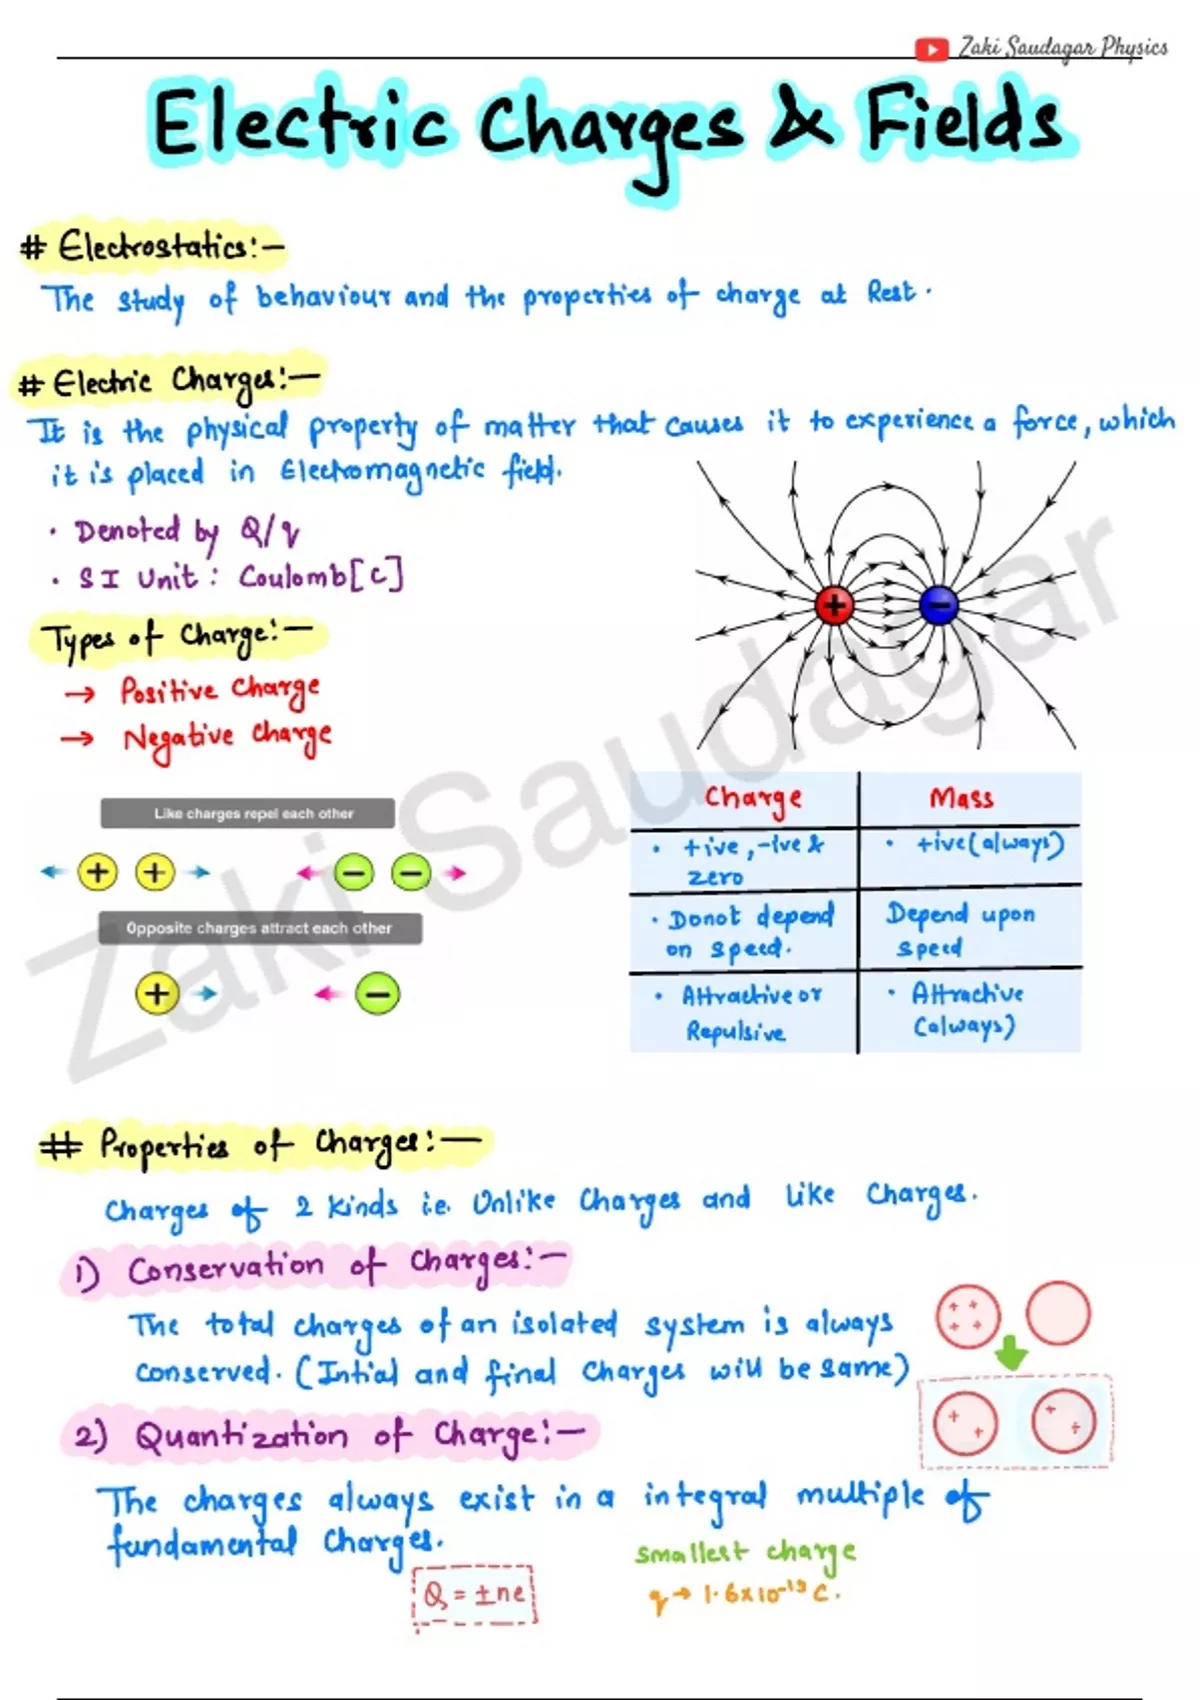 Zaki Saudagar Physics
Electric Charges & Fields
# Electrostatics:-
The study of behaviour and the properties of charge at Rest.
# Electric Charges:-
It is the physical property of matter that causes it to experience a force, which
it is placed in Electromagnetic field.
• Denoted by Q/q
• SI Unit : Coulomb[C]
Types of Charge:-
→ Positive Charge
→ Negative Charge
+ −
Like charges repel each other
+ + − −
Opposite charges attract each other
+ −
Charge Mass
• +ive, -ive & • +ive(always)
zero
• Donot depend Depend upon
on speed. speed
• Attractive or • Attractive
Repulsive (always)
Zaki Saudagar
# Properties of Charges:-
Charges of 2 Kinds i.e. Unlike Charges and Like Charges.
1) Conservation of Charges:-
The total charges of an isolated system is always
conserved. (Intial and final Charges will be same)
+ +
+ +
+ +
+ +
2) Quantization of Charge:-
The charges always exist in a integral multiple of
fundamental Charges.
smallest charge
Q = ±ne
q → 1.6x10-19 C.